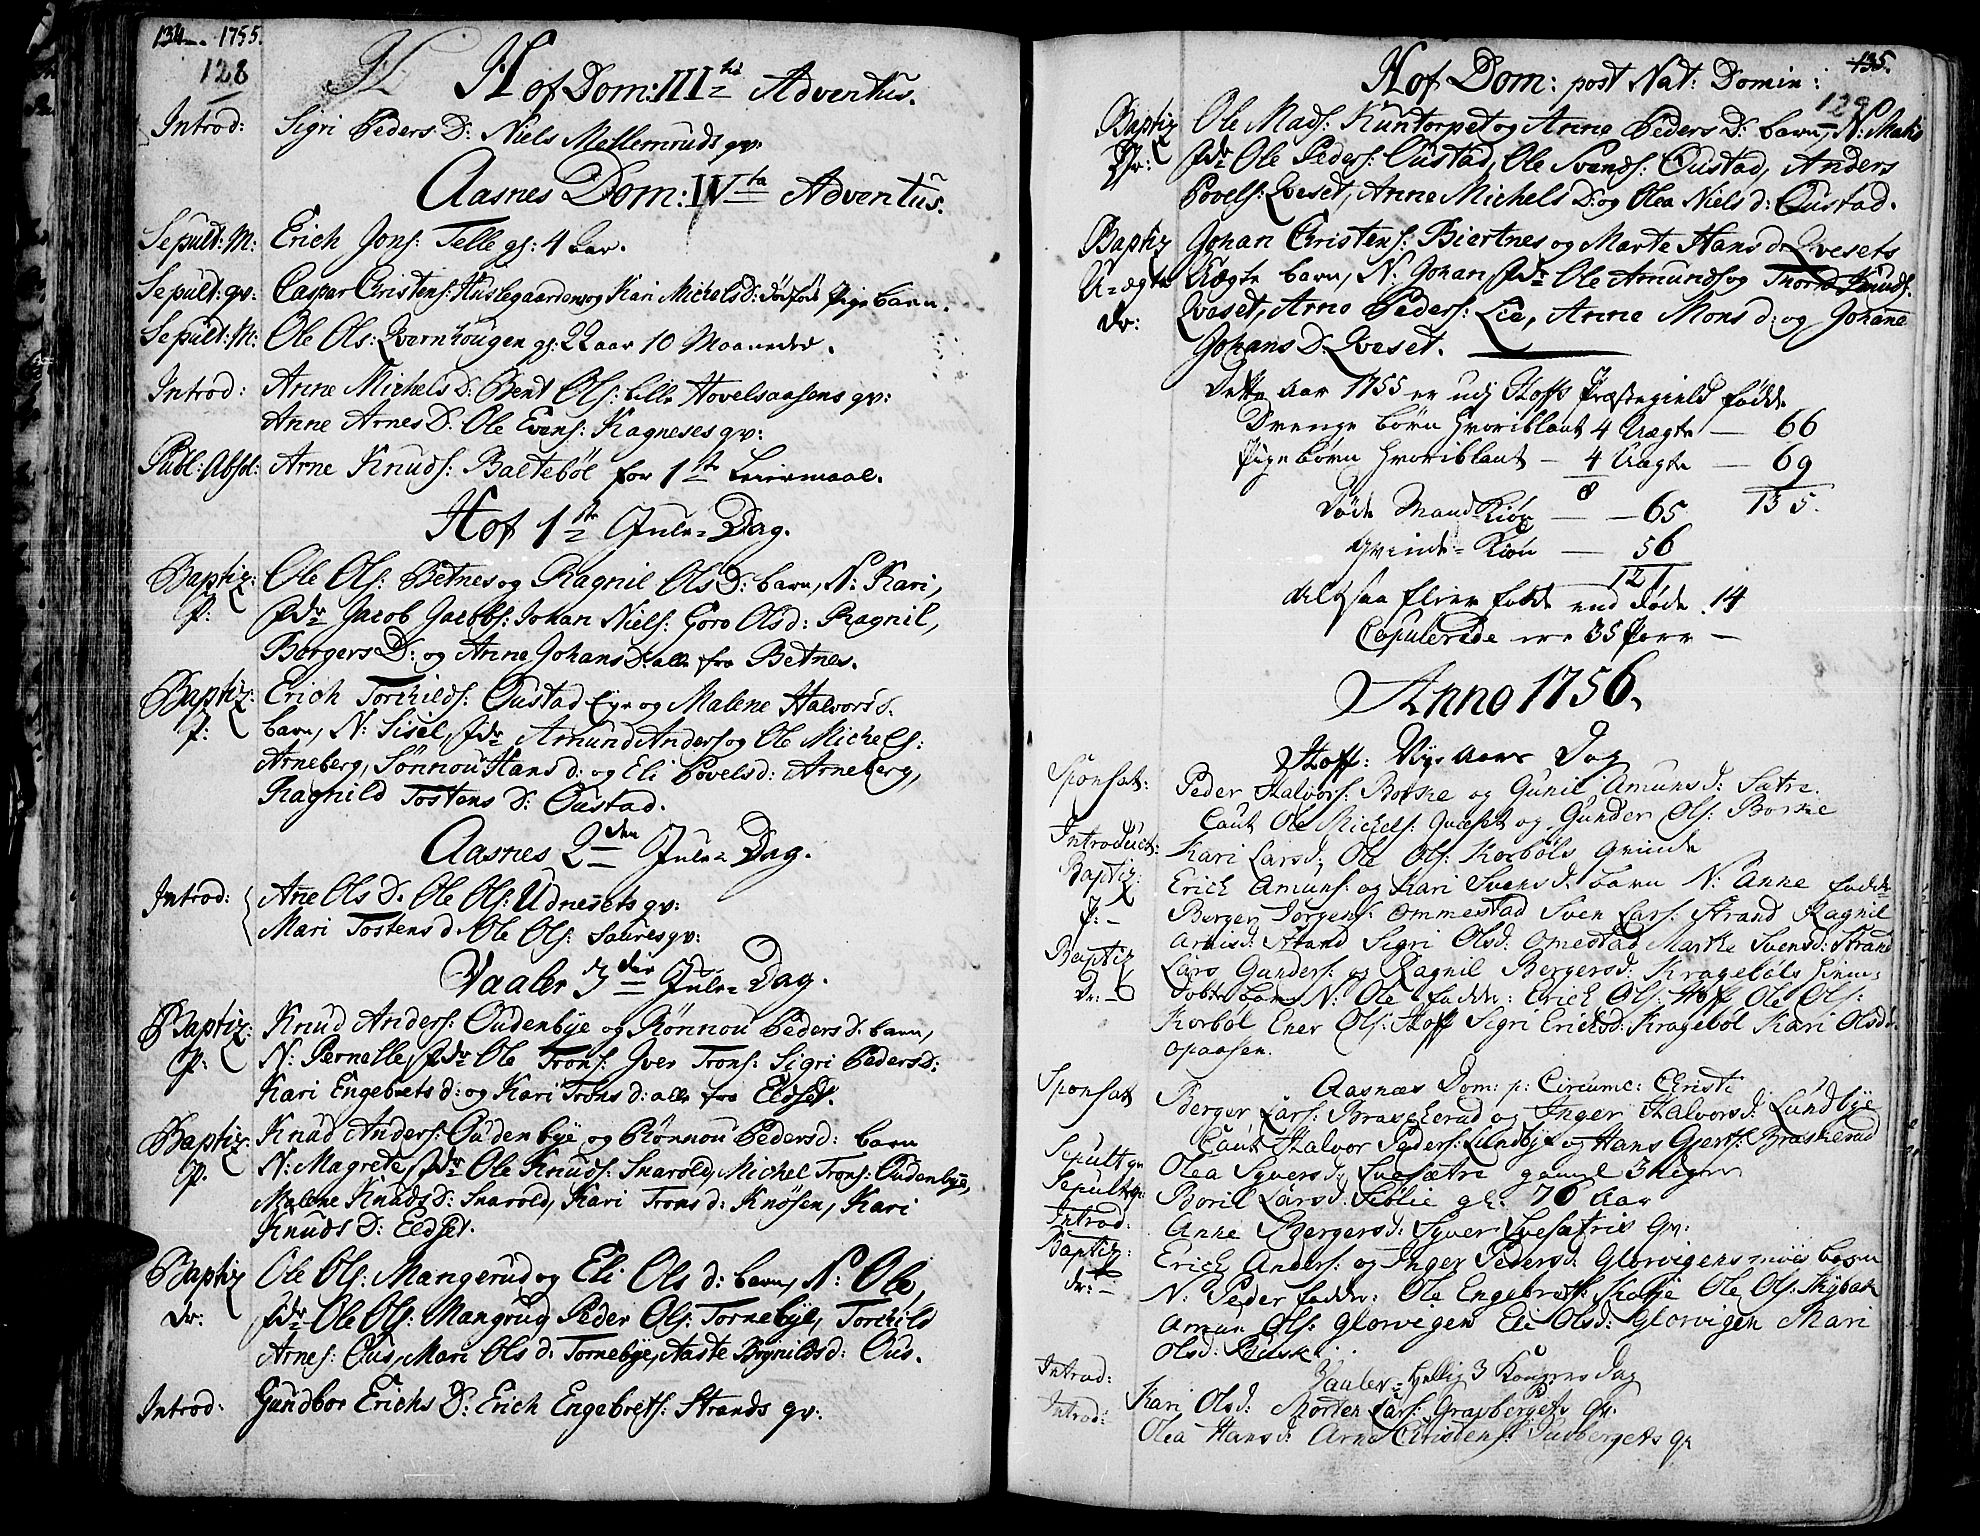 134. 1755.
128
Hof Dom: III tia Adventus.
Introd: Sigri Peders D: Niels Mellemruds qv:
Aasnes Dom: IV ta Adventus.
Sepult: M: Erich Jons: Telle gl: 4 aar.
Sepult: qv: Caspar Christens: Huslegaarden og Kari Michels D: dödföd Pige barn.
Sepult: M: Ole Ols: Qvernhougen gl: 22 aar 10 Maaneder.
Introd: Anne Michels D: Bent Ols: lille Hovelsaasens qv:
Anne Arnes D: Ole Evens: Kagneses qv:
Publ: Absol: Arne Knuds: Baltebøl for 1ste Leiermaal.
Hof 1ste Jule-Dag.
Baptiz: Ole Ols: Betnes og Ragnil Ols D: barn, N: Kari,
P: Fdr Jacob Jacobs: Johan Niels: Goro Ols d: Ragnil,
Borgers D: og Anne Johans D: alle fra Betnes.
Baptiz: Erich Torchilds: Oustad Eye og Malene Halvors d.
P: barn, N: Sisel, Fdr Amund Anders og Ole Michels:
Arneberg, Sönnou Hans d: og Eli Povels d: Arneberg,
Ragnild Tostens D: Oustad.
Aasnes 2den Jule-Dag.
Introd: Ane Ols D. Ole Ols: Udnesets qv:
Mari Tostens d. Ole Ols: Saures qv:
Vaaler 3die Jule-Dag.
Baptiz: Knud Anders: Oudenbye og Rönnou Peders d: barn,
P: N: Pernelle, Fdr Ole Trons: Iver Trons: Sigri Peders D:
Kari Engebrets d: og Kari Trons d: alle fra Eldset.
Baptiz: Knud Anders: Oudenbye og Rönnou Peders d: barn
P. N: Magrete, Fdr Ole Knuds: Snarold, Michel Trons: Oudenbye,
Malene Knuds D: Snarold, Kari Trons d: Knösen, Kari
Knuds D: Eldset.
Baptiz Ole Ols: Mangerud og Eli Ols d: barn, N: Ole,
Dr: Fdr Ole Ols: Mangrud, Peder Ols: Tornebye, Torchild
Arnes: Ous, Mari Ols d: Tornebye, Aaste Brynilds d: Ous.
Introd: Gundbor Erichs D: Erich Engebrets: Strands qv:
135.
129
Hof Dom: post Nat: Domin:
Baptiz Ole Mads: Kuntorpet og Anne Peders D: barn, N: Mats
Dr: Fdr Ole Peders: Oustad, Ole Svends: Oustad, Anders
Povels: Qveset, Anne Michels D: og Olea Niels d: Oustad.
Baptiz Johan Christens: Biertnes og Marte Hans d: Qvesets
U-ægte Uægte barn, N: Johan, Fdr Ole Amunds og Knuds:
Dr: Qveset, Arne Peders: Lie, Anne Mons d: og Johanne
Johans D: Qveset.
Dette Aar 1755 er udj Hoffs Præstegield fødde
Drenge børn hvoriblant 4 Uægte — 66
Pige børn hvoriblant — 4 Uægte — 69
8 135.
Døde Mand-Kiøn — 65
Qvinde-Kiøn — 56
121
altsaa fleer fødde end døde 14
Copulerede ere 35 Parr —
Anno 1756.
Hoff: Nyt Aars Dag
Sponsat: Peder Halvors: Borke og Gunil Amuns d: Sætre.
Caut Ole Michels: Quæset og Gunder Ols: Borke
Introduct: Kari Lars d: Ole Ols: Korbøls Qvinde
Baptiz: Erich Amuns: og Kari Svens d. barn N: Anne fadde
P: — Berger Jorgens: Ommestad Sven Lars: Strand Ragnil
Arnis d: Strand Sigri Ols d: Omestad Marthe Svens d: Strand
Baptiz Lars Gunders: og Ragnil Bergers d: Kragebøls hiemme
Dr: — døbte barn N: Ole fadder: Erich Ols: Hoff Ole Ols:
Korbøl Ener Ols: Hoff Sigri Erichs d: Kragebøl Kari Ols d:
opaasen.
Aasnæs Dom: p: Circumc: Christi
Sponsat Berger Lars: Braskerud og Inger Halvors d: Lundbye
Caut Halvor Peders: Lundbye og Hans Gierts: Braskerud
Sepult qv Olea Syvers d: Evesætre gamel 3 Uger
Sepult qv: Boril Lars d: Libblie gl: 76 Aar
Introd: Anne Bergers d: Syver Evesætris Qv:
Baptiz: Erich Anders: og Inger Peders d: Glorvigens moes barn
dr: — N: Peder fadder: Ole Engebrets: Skolje Ole Ols: Nybak
Amun Ols: Glorvigen Eli Ols d: Glorvigen Mari
Ols d: Rusk.
Vaaler: Hellig 3 Kongers Dag
Introd: Kari Ols d: Morten Lars: Grasbergets Qv.
Introd: Olea Hans d: Arne Christens: Qv